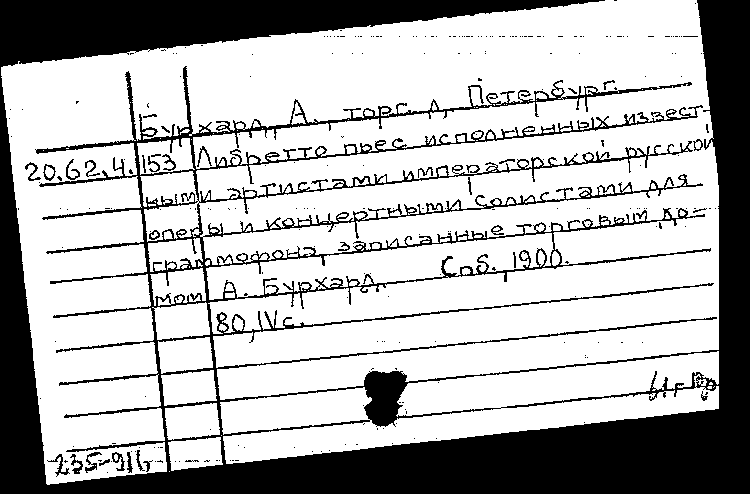 Бурхард, А., торг. д, Петербург.
20.62.4.153 Либретто пьес исполненных извест-
ными артистами императорской русской
оперы и концертными солистами для
граммофона, записанные торговым до-
мом А. Бурхард. Спб., 1900.
80, IV с.